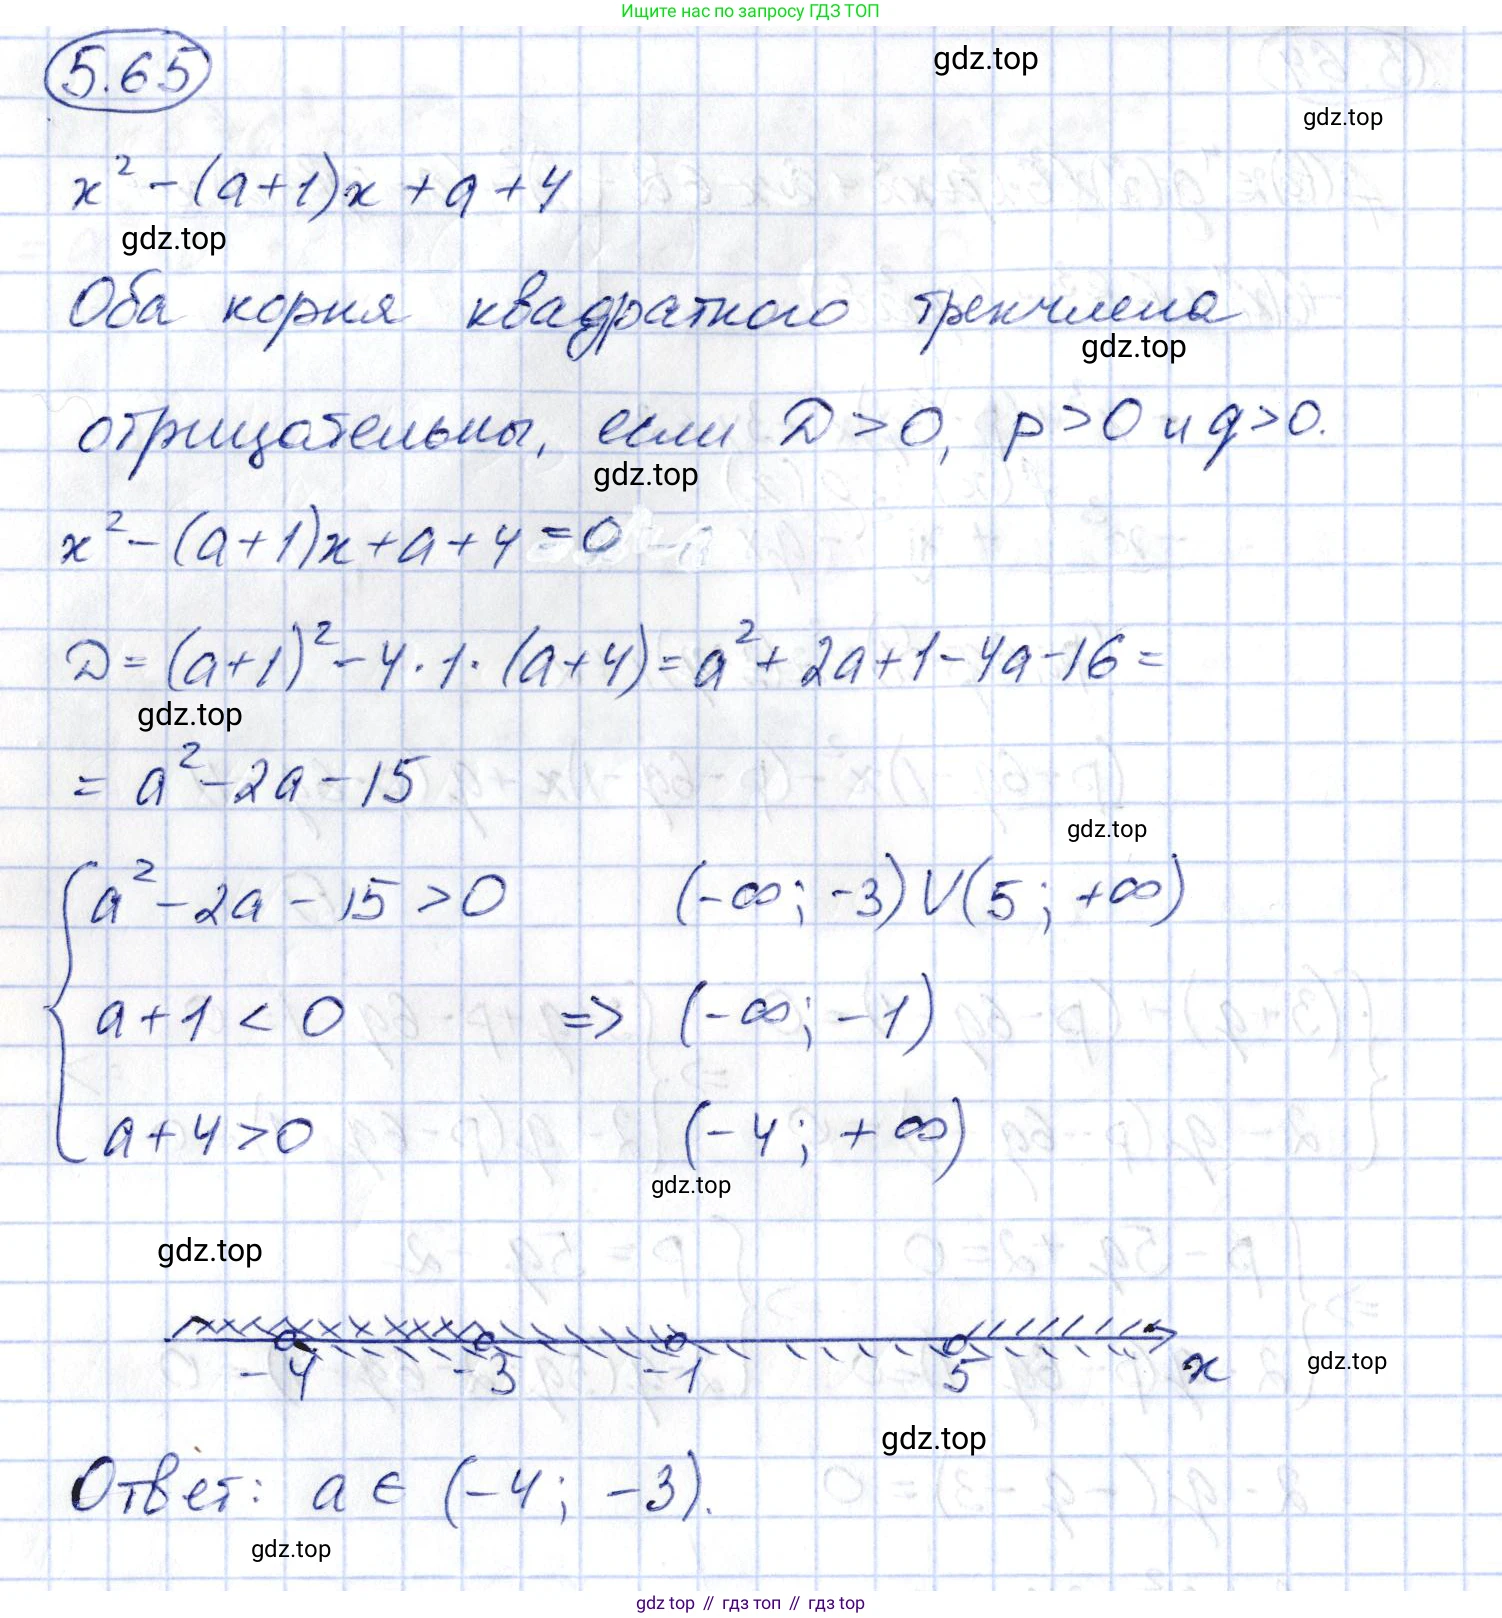 Ищите нас по запросу ГДЗ ТОП
5.65
gdz.top
gdz.top
x² - (a+1)x + a + 4
gdz.top
Оба корня квадратного трехчлена
gdz.top
отрицательны, если D > 0, p > 0 и q > 0.
gdz.top
x² - (a+1)x + a + 4 = 0
D = (a+1)² - 4 · 1 · (a+4) = a² + 2a + 1 - 4a - 16 =
gdz.top
= a² - 2a - 15
gdz.top
a² - 2a - 15 > 0 (-∞; -3) ∪ (5; +∞)
a + 1 < 0 => (-∞; -1)
a + 4 > 0 (-4; +∞)
gdz.top
gdz.top
-4 -3 -1 5 x
gdz.top
gdz.top
Ответ: a ∈ (-4; -3).
gdz.top
gdz top // гдз топ // гдз top